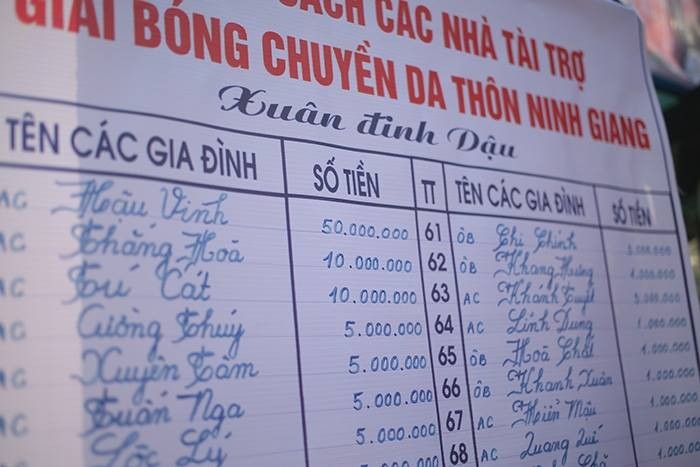 SÁCH CÁC NHÀ TÀI TRỢ
GIẢI BÓNG CHUYỀN DA THÔN NINH GIANG
Xuân đinh Dậu
TÊN CÁC GIA ĐÌNH SỐ TIỀN TT TÊN CÁC GIA ĐÌNH SỐ TIỀN
AC Hậu Vinh 50.000.000 61 ÔB Chi Chinh
AC Thăng Hoà 10.000.000 62 ÔB Khang Hưng 1.000.000
AC Tú Cát 10.000.000 63 AC Khánh Tuyết
AC Cường Thúy 5.000.000 64 AC Linh Dung 1.000.000
AC Xuyên Tâm 5.000.000 65 ÔB Hoà 1.000.000
AC Tuấn Nga 5.000.000 66 ÔB Khanh Xuân 1.000.000
AC Lộc Lý 5.000.000 67 AC Hiển Mậu 1.000.000
5.000.000 68 AC Quang Quí 1.000.000